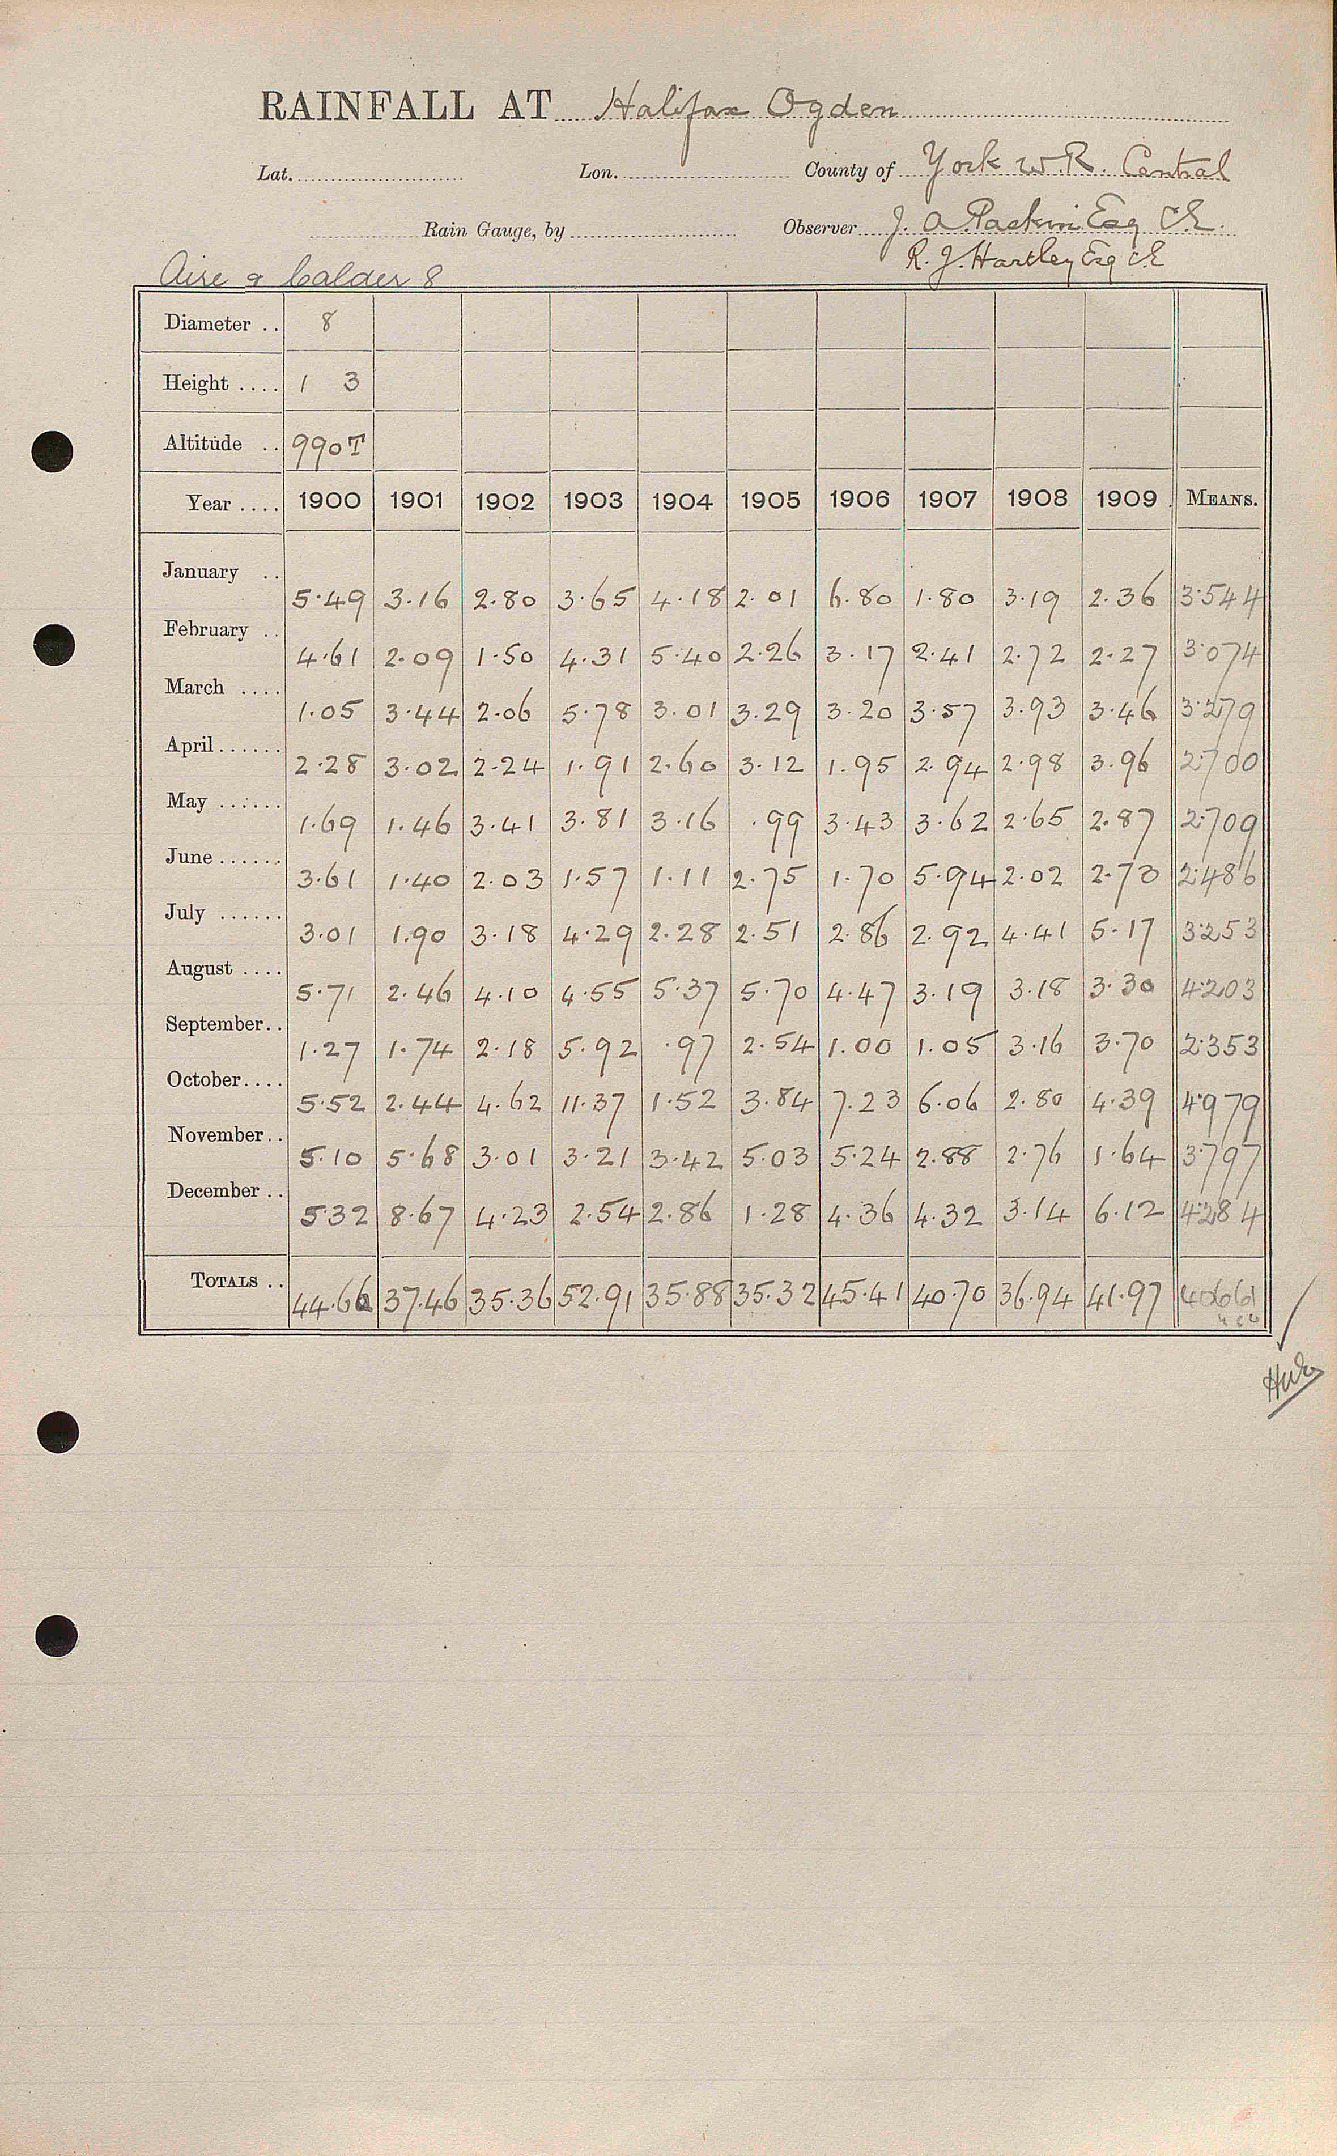 RAINFALL AT Halifax Ogden
Lat. Lon. County of York W.R. Central
Rain Gauge, by Observer J. A. Paskin Esq C.E.
R. J. Hartley Esq C.E
Aire & Calder 8
Diameter .. 8
Height .... 1 3
Altitude .. 990T
Year .... 1900 1901 1902 1903 1904 1905 1906 1907 1908 1909 MEANS.
January .. 5.49 3.16 2.80 3.65 4.18 2.01 6.80 1.80 3.19 2.36 3.544
February .. 4.61 2.09 1.50 4.31 5.40 2.26 3.17 2.41 2.72 2.27 3.074
March .... 1.05 3.44 2.06 5.78 3.01 3.29 3.20 3.57 3.93 3.46 3.279
April ...... 2.28 3.02 2.24 1.91 2.60 3.12 1.95 2.94 2.98 3.96 2.700
May ...... 1.69 1.46 3.41 3.81 3.16 .99 3.43 3.62 2.65 2.87 2.709
June ...... 3.61 1.40 2.03 1.57 1.11 2.75 1.70 5.94 2.02 2.73 2.486
July ...... 3.01 1.90 3.18 4.29 2.28 2.51 2.86 2.92 4.41 5.17 3.253
August .... 5.71 2.46 4.10 4.55 5.37 5.70 4.47 3.19 3.18 3.30 4.203
September.. 1.27 1.74 2.18 5.92 .97 2.54 1.00 1.05 3.16 3.70 2.353
October.... 5.52 2.44 4.62 11.37 1.52 3.84 7.23 6.06 2.80 4.39 4.979
November.. 5.10 5.68 3.01 3.21 3.42 5.03 5.24 2.88 2.76 1.64 3.797
December .. 5.32 8.67 4.23 2.54 2.86 1.28 4.36 4.32 3.14 6.12 4.284
TOTALS .. 44.66 37.46 35.36 52.91 35.88 35.32 45.41 40.70 36.94 41.97 40.661